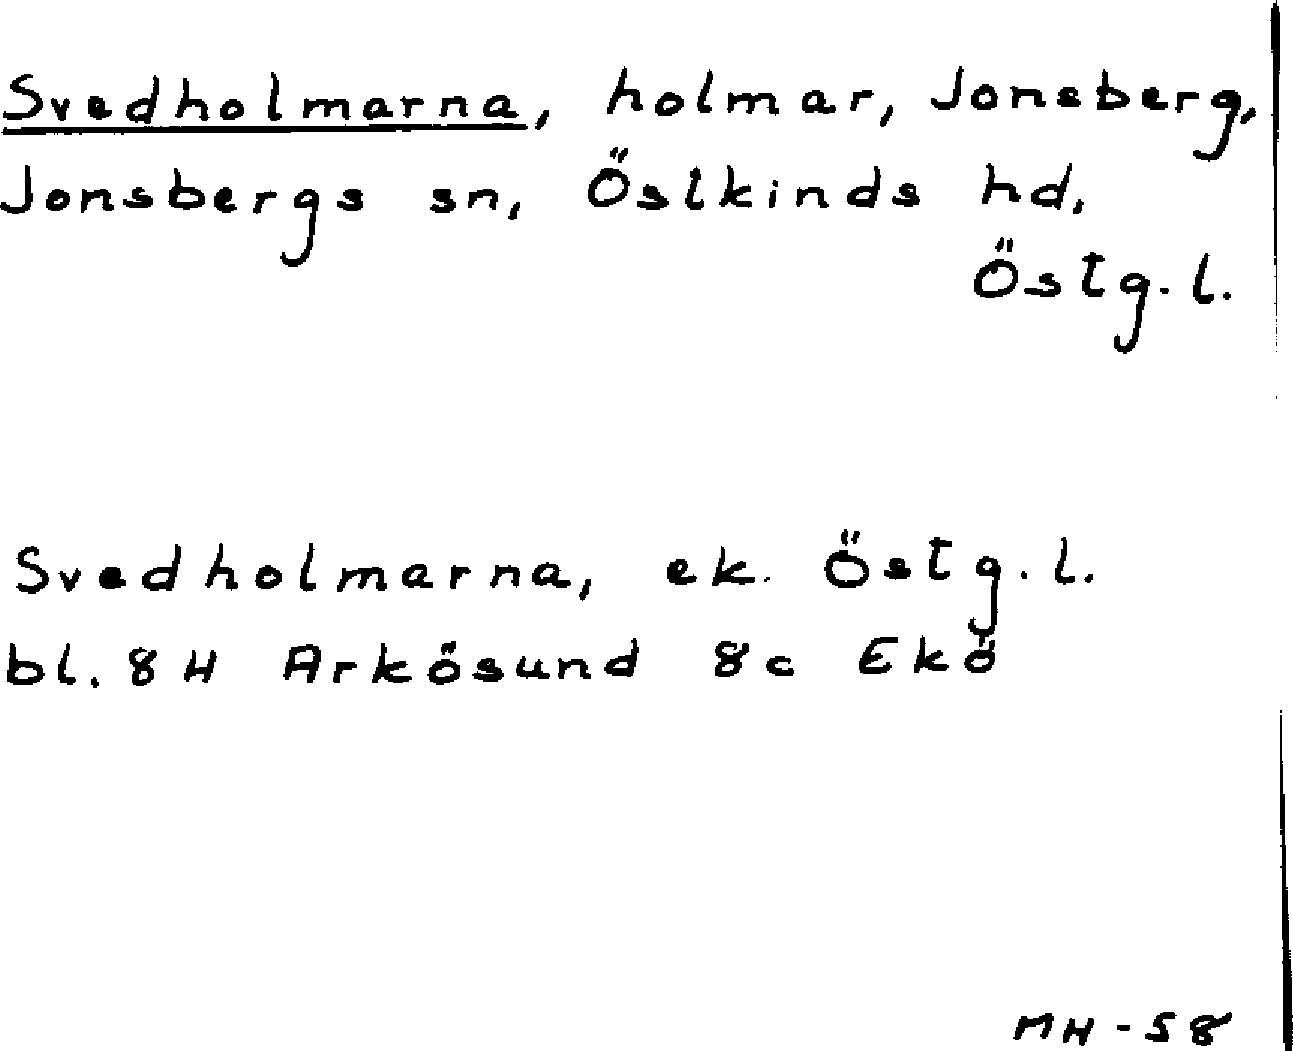 Svedholmarna, holmar, Jonsberg,
Jonsbergs sn, Östkinds hd,
Östg. l.
Svedholmarna, ek. Östg. l.
bl. 8 H Arkösund 8 c Ekö
MH - 58